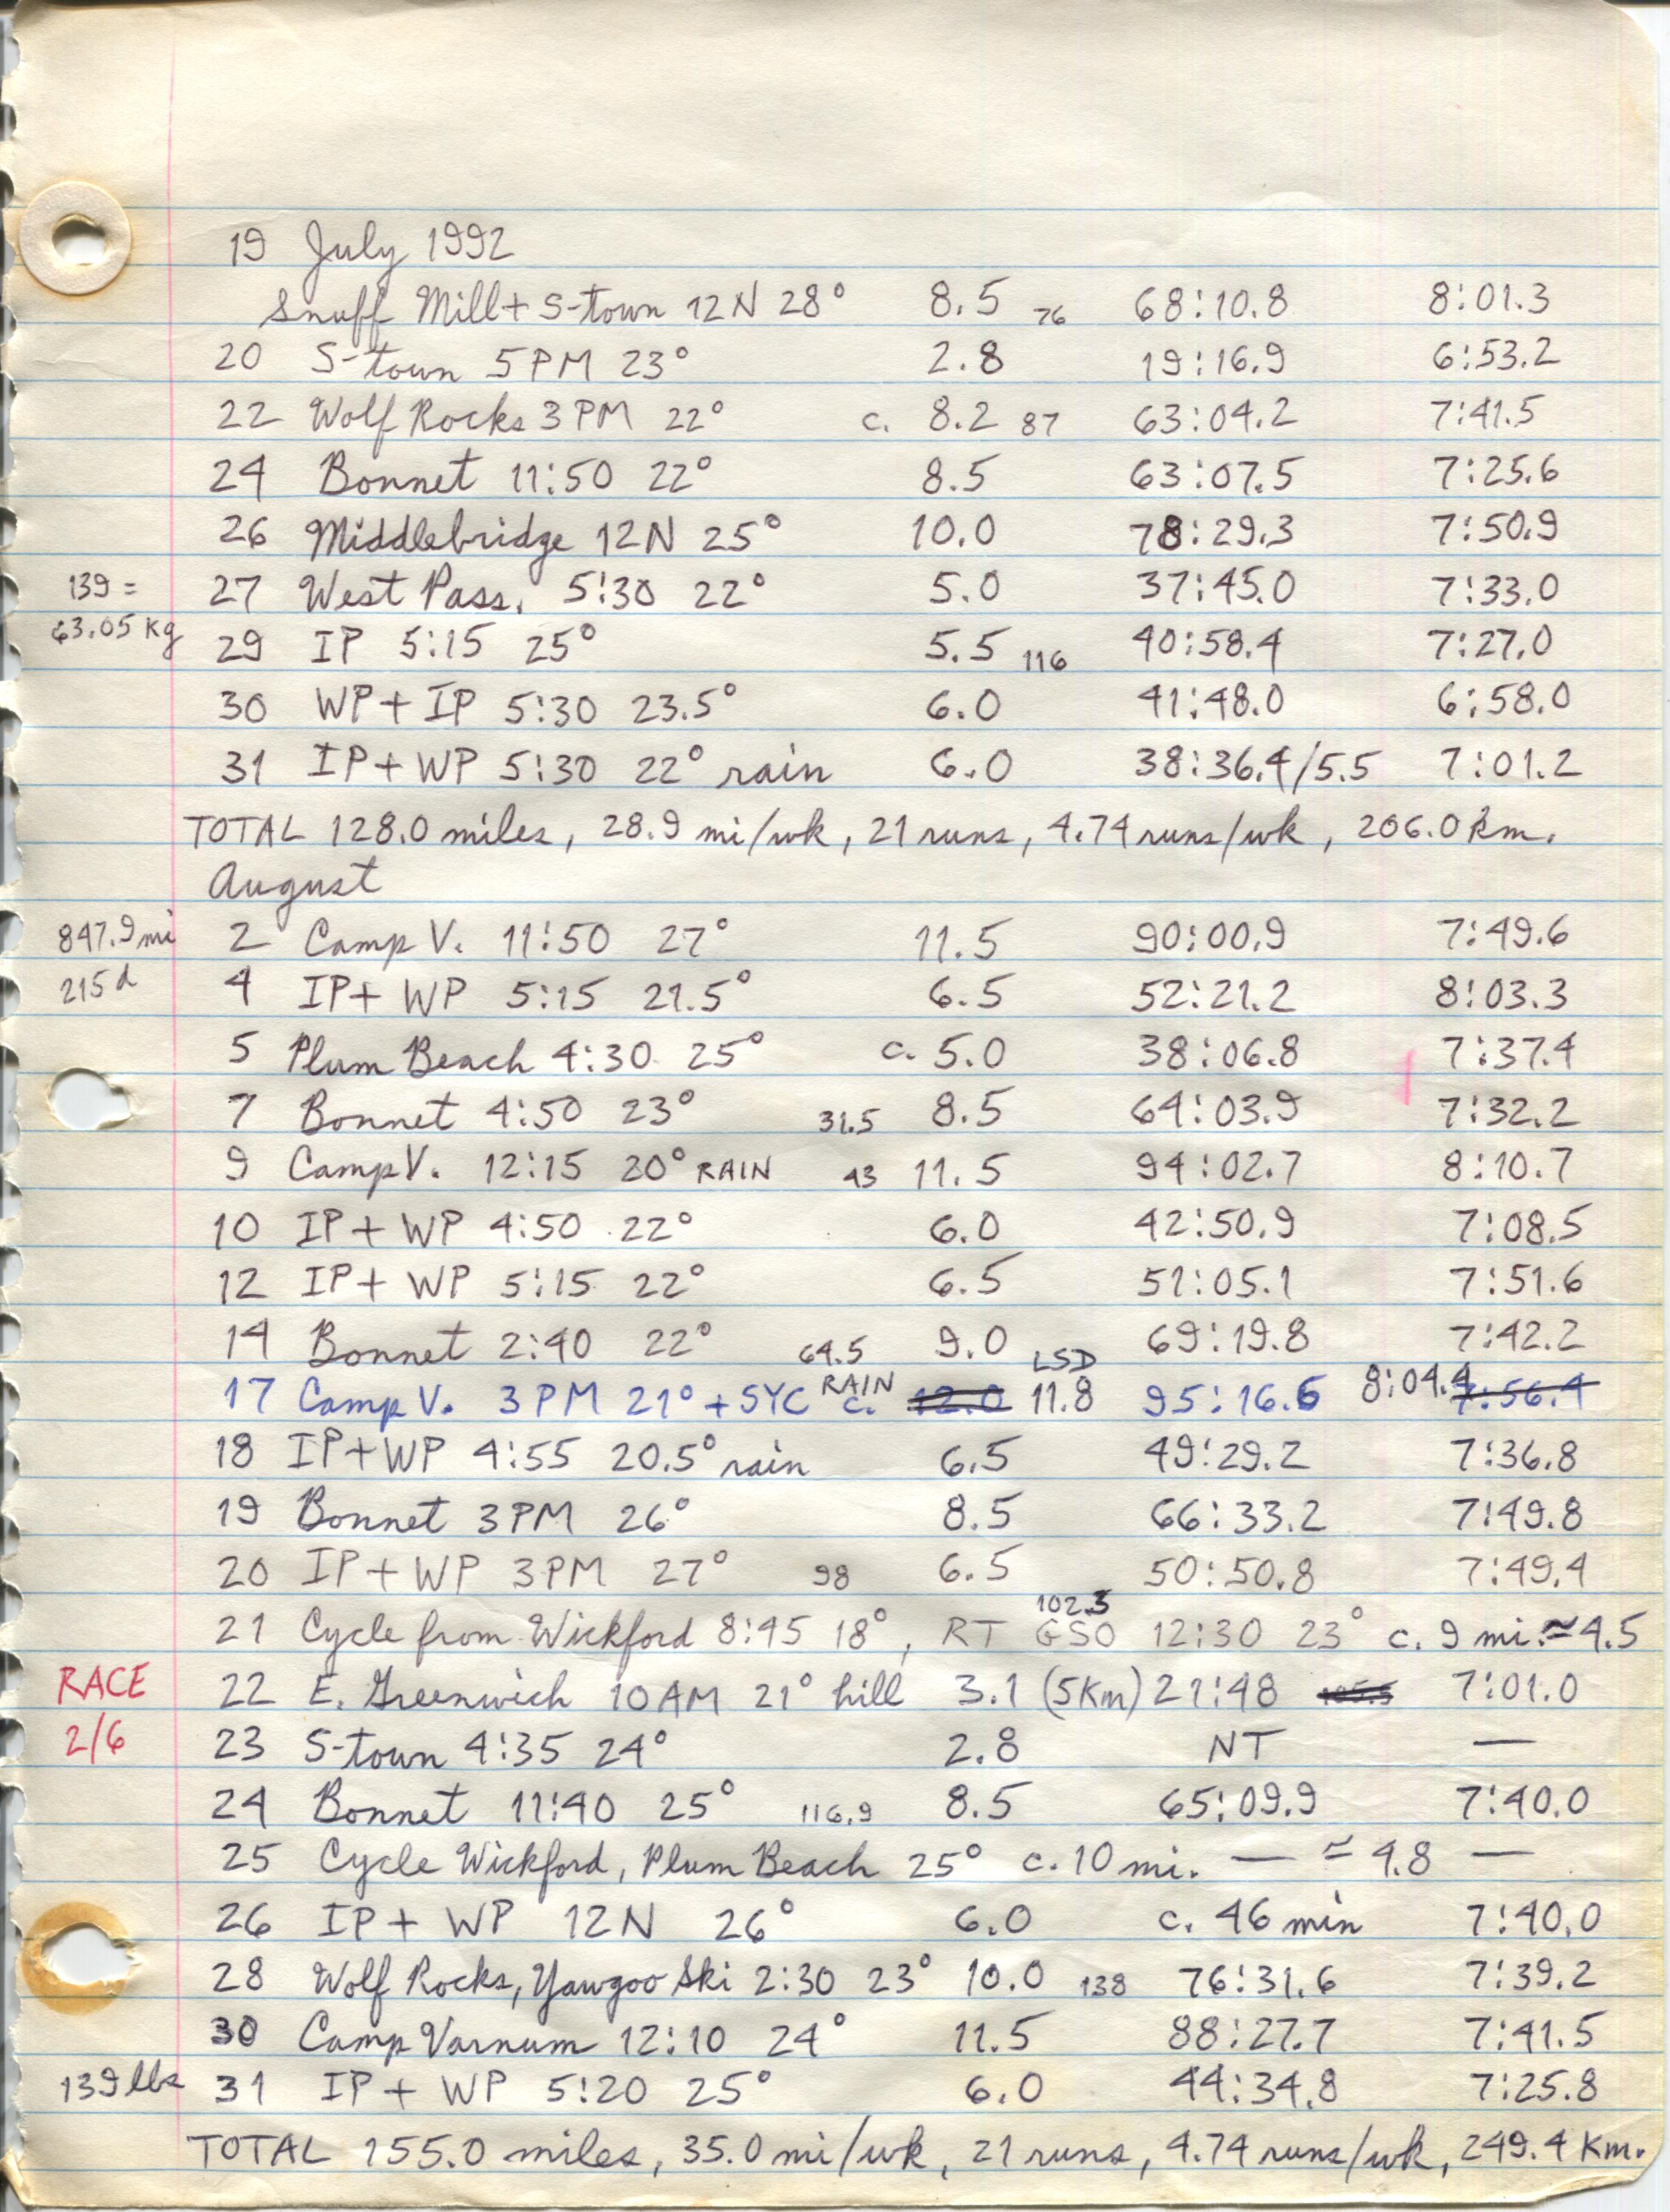 19 July 1992
Snuff Mill + S-town 12N 28° 8.5 76 68:10.8 8:01.3
20 S-town 5PM 23° 2.8 19:16.9 6:53.2
22 Wolf Rocks 3PM 22° c. 8.2 87 63:04.2 7:41.5
24 Bonnet 11:50 22° 8.5 63:07.5 7:25.6
26 Middlebridge 12N 25° 10.0 78:29.3 7:50.9
139 = 27 West Pass. 5:30 22° 5.0 37:45.0 7:33.0
63.05 kg 29 IP 5:15 25° 5.5 116 40:58.4 7:27.0
30 WP + IP 5:30 23.5° 6.0 41:48.0 6:58.0
31 IP + WP 5:30 22° rain 6.0 38:36.4/5.5 7:01.2
TOTAL 128.0 miles, 28.9 mi/wk, 21 runs, 4.74 runs/wk, 206.0 km.
August
847.9 mi 2 Camp V. 11:50 27° 11.5 90:00.9 7:49.6
215 d 4 IP + WP 5:15 21.5° 6.5 52:21.2 8:03.3
5 Plum Beach 4:30 25° c. 5.0 38:06.8 7:37.4
7 Bonnet 4:50 23° 31.5 8.5 64:03.9 7:32.2
9 Camp V. 12:15 20° RAIN 43 11.5 94:02.7 8:10.7
10 IP + WP 4:50 22° 6.0 42:50.9 7:08.5
12 IP + WP 5:15 22° 6.5 51:05.1 7:51.6
14 Bonnet 2:40 22° 64.5 9.0 69:19.8 7:42.2
17 Camp V. 3PM 21° + SYC RAIN c. 12.0 LSD 11.8 95:16.6 8:04.4 7:56.4
18 IP + WP 4:55 20.5° rain 6.5 49:29.2 7:36.8
19 Bonnet 3PM 26° 8.5 66:33.2 7:49.8
20 IP + WP 3PM 27° 98 6.5 50:50.8 7:49.4
21 Cycle from Wickford 8:45 18°, RT GSO 102.3 12:30 23° c. 9 mi. ≈ 4.5
RACE 22 E. Greenwich 10AM 21° hill 3.1 (5Km) 21:48 105.5 7:01.0
2/6 23 S-town 4:35 24° 2.8 NT —
24 Bonnet 11:40 25° 116.9 8.5 65:09.9 7:40.0
25 Cycle Wickford, Plum Beach 25° c. 10 mi. — ≈ 4.8 —
26 IP + WP 12N 26° 6.0 c. 46 min 7:40.0
28 Wolf Rocks, Yawgoo Ski 2:30 23° 10.0 138 76:31.6 7:39.2
30 Camp Varnum 12:10 24° 11.5 88:27.7 7:41.5
139 lbs 31 IP + WP 5:20 25° 6.0 44:34.8 7:25.8
TOTAL 155.0 miles, 35.0 mi/wk, 21 runs, 4.74 runs/wk, 249.4 Km.